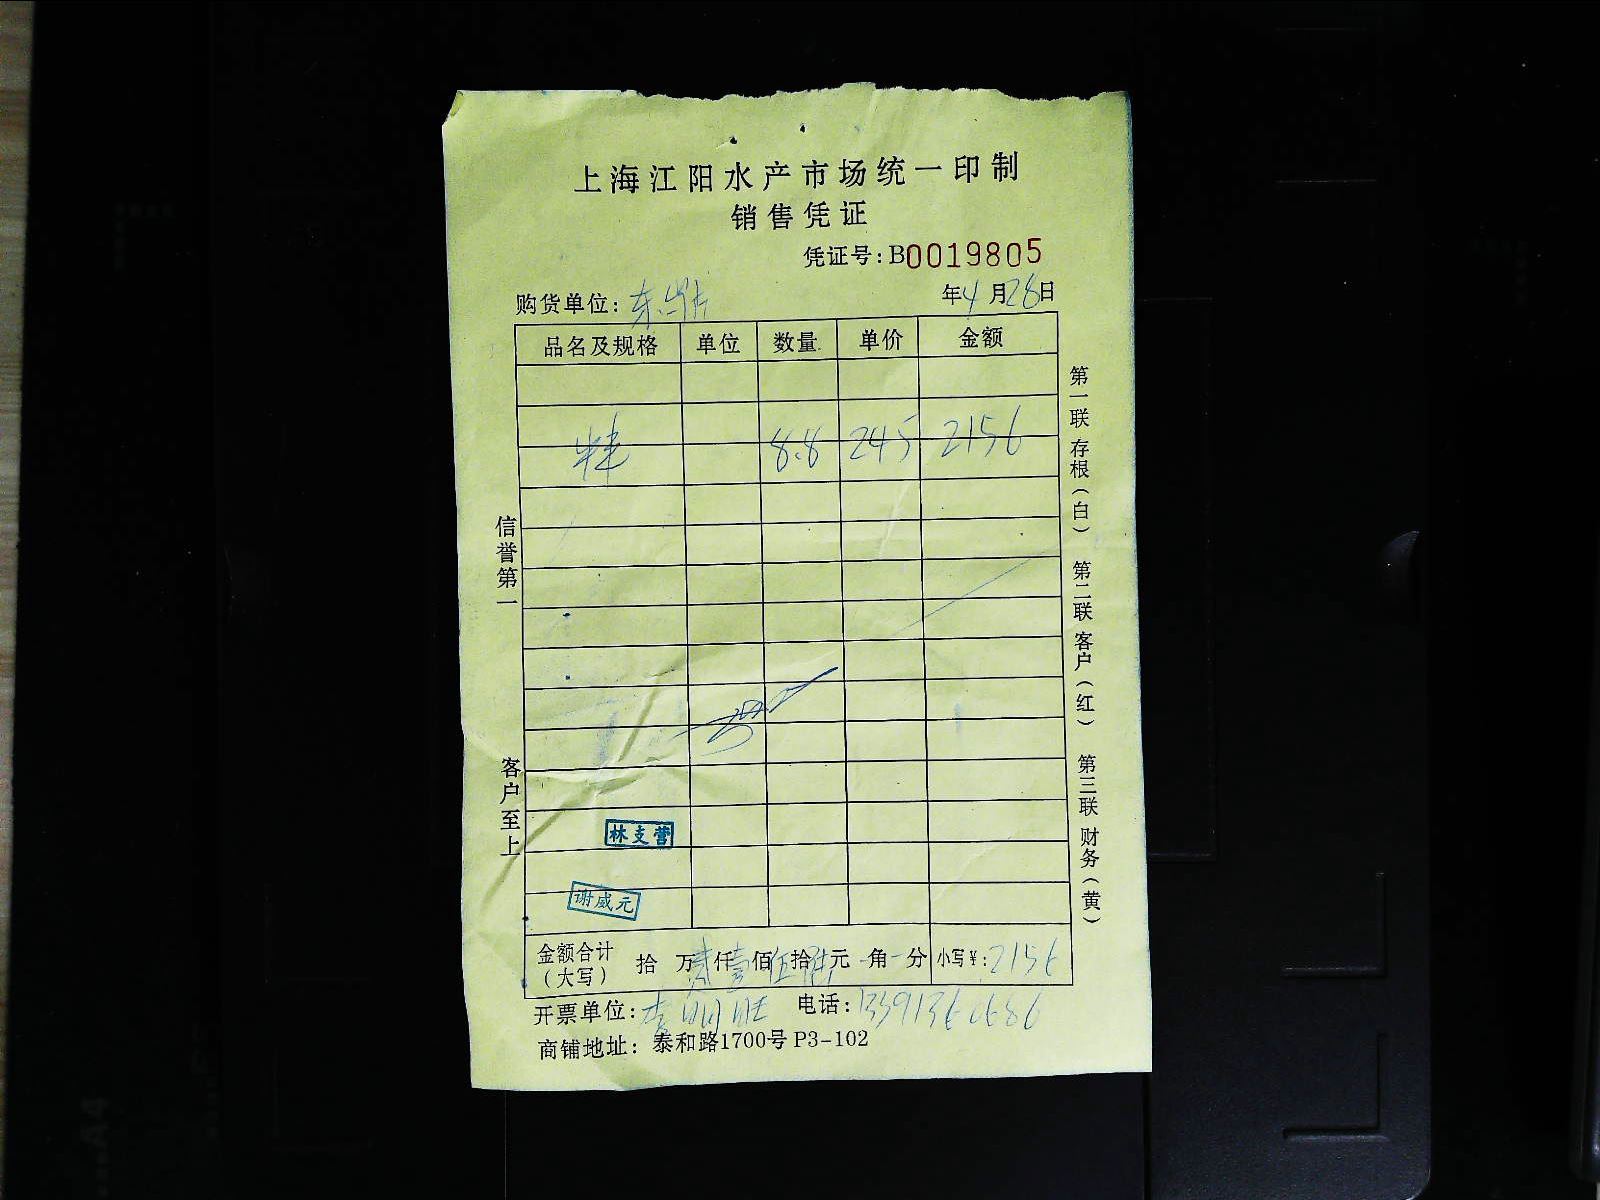 上海江阳水产市场统一印制
销售凭证
凭证号:B0019805
购货单位:
年4月28日
品名及规格 单位 数量 单价 金额
8.8 245 2156
信誉第一
客户至上
第一联 存根(白) 第二联 客户(红) 第三联 财务(黄)
林支营
谢威元
金额合计(大写) 拾万贰仟壹佰伍拾陆元 角 分 小写¥:2156
开票单位:李明旺 电话:
商铺地址:泰和路1700号 P3-102